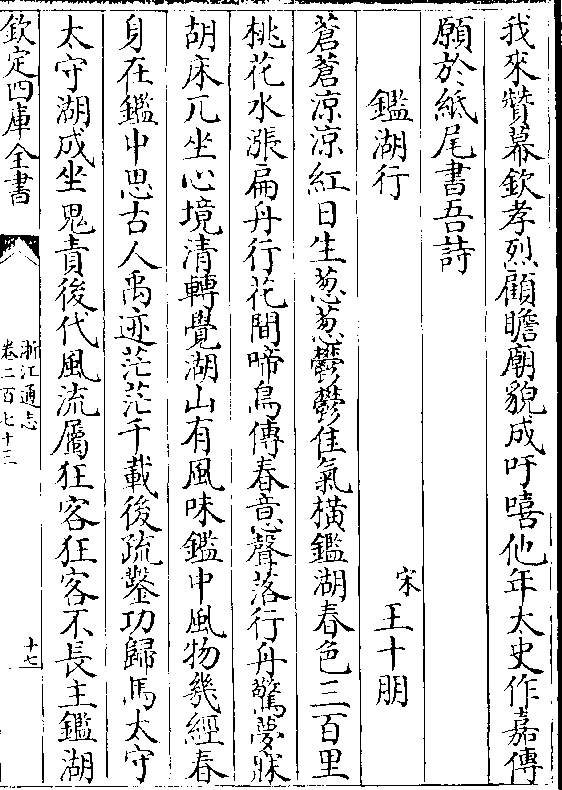 我來贊幕欽孝烈顧瞻廟貌成吁嘻他年太史作嘉傳
願於紙尾書吾詩
鑑湖行
宋王十朋
蒼蒼涼涼紅日生葱葱鬱鬱佳氣橫鑑湖春色三百里
桃花水漲扁舟行花間啼鳥傳春意聲落行舟驚夢寐
胡床兀坐心境清轉覺湖山有風味鑑中風物幾經春
身在鑑中思古人禹迹茫茫千載後疏鑿功歸馬太守
太守湖成坐鬼責後代風流屬狂客狂客不長主鑑湖
欽定四庫全書
浙江通志
卷二百七十三
十七